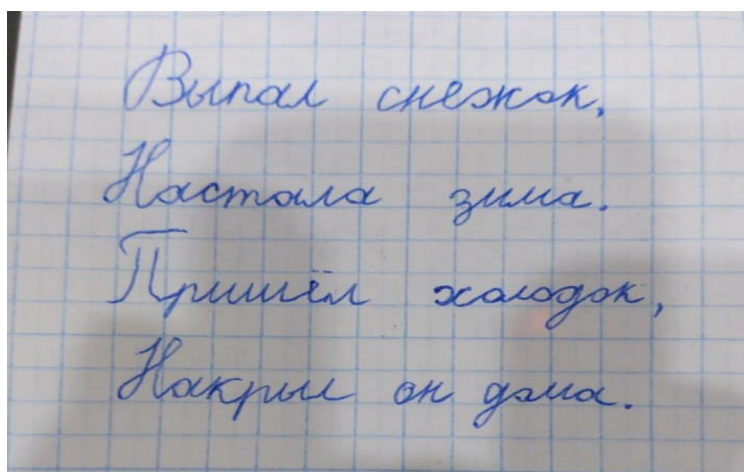 Выпал снежок,
Настала зима.
Пришёл холодок,
Накрыл он дома.